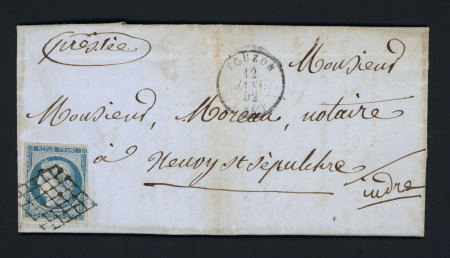 pressée
EGUZON
12
JANV.
52
Monsieur
Monsieur, Moreau, notaire
à Neuvy St Sépulchre
indre
REPUB. FRANC.